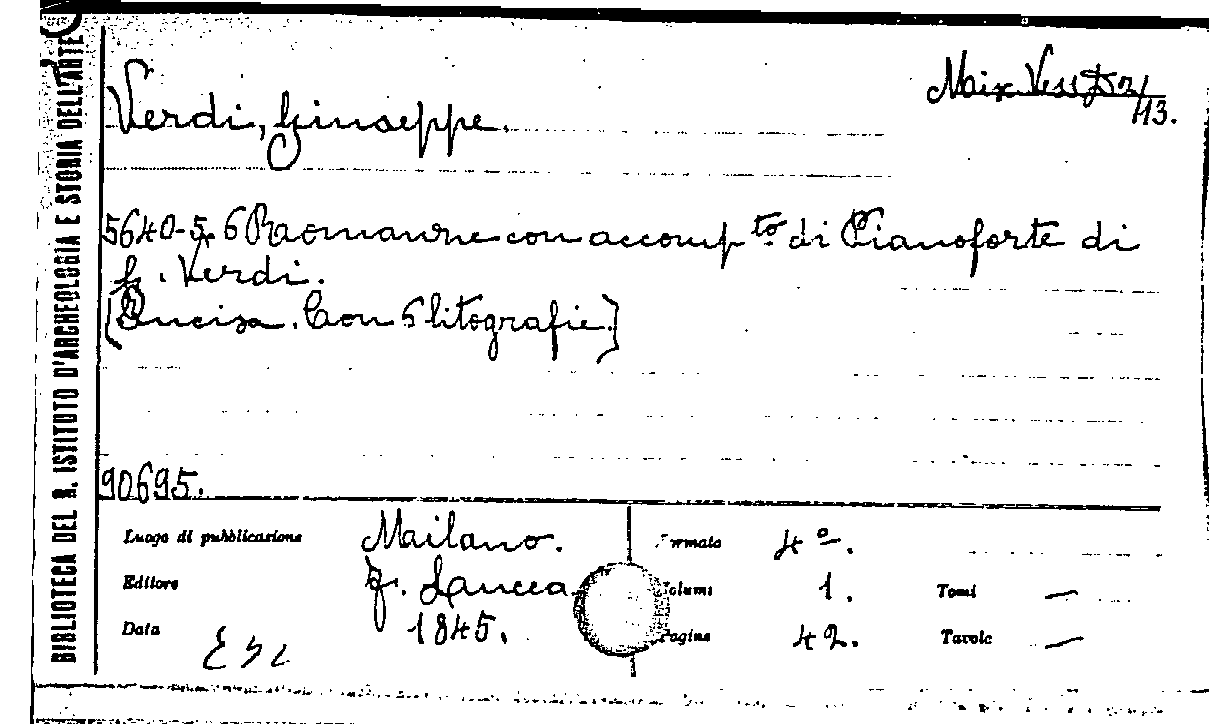 BIBLIOTECA DEL R. ISTITUTO D'ARCHEOLOGIA E STORIA DELL'ARTE
Verdi, Giuseppe.
13.
5640-5. 6 Romanze con accomp.to di Pianoforte di
G. Verdi.
[Incisa. Con 6 litografie.]
90695.
Luogo di pubblicazione Milano. Formato 4º.
Editore F. Lucca Volumi 1. Tomi —
Data 1845. Pagine 42. Tavole —